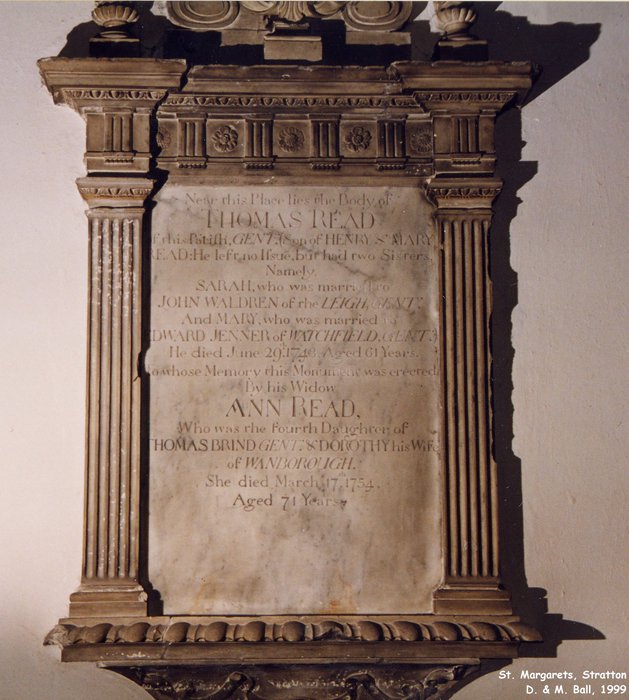 Near this Place lies the Body of
THOMAS READ
of this Parish, GENT, Son of HENRY & MARY
READ: He left no Issue, but had two Sisters,
Namely,
SARAH, who was married to
JOHN WALDREN of the LEIGH, GENT:
And MARY, who was married to
EDWARD JENNER of WATCHFIELD, GENT:
He died June 29th, Aged 61 Years.
To whose Memory this Monument was erected
By his Widow
ANN READ,
Who was the fourth Daughter of
THOMAS BRIND GENT: & DOROTHY his Wife
of WANBOROUGH.
She died March 17th 1754,
Aged 71 Years.
St. Margarets, Stratton
D. & M. Ball, 1999